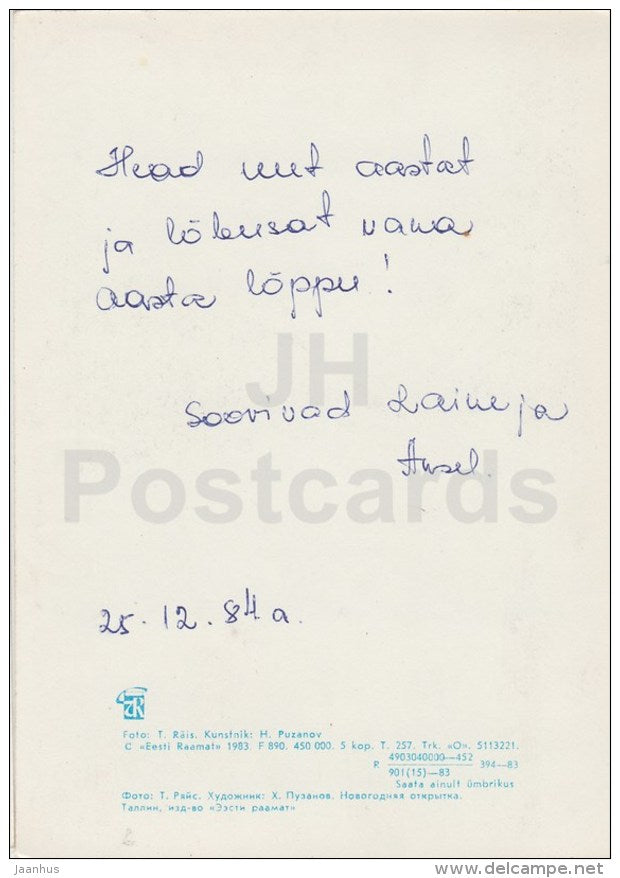 Head uut aastat
ja lõbusat vana
aasta lõppu!
JH
Postcards
Soovivad Laine ja
Ansel.
25. 12. 84 a.
Foto: T. Räis. Kunstnik: H. Puzanov
© «Eesti Raamat» 1983. F 890. 450 000. 5 kop. T. 257. Trk. «O». 5113221.
R 4903040000—452
901(15)—83 394—83
Saata ainult ümbrikus
Фото: Т. Ряйс. Художник: Х. Пузанов. Новогодняя открытка.
Таллин, изд-во «Ээсти раамат»
jaanhus
www.delcampe.net